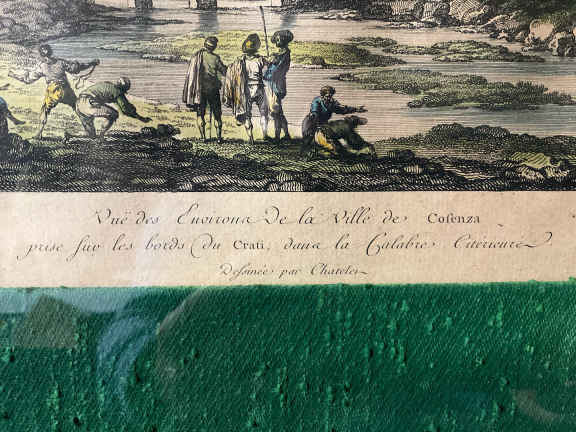 Vuë des Environs De la Ville de Cosenza
prise sur les bords du Crati, dans la Calabre Citérieure
Dessinée par Chatelet